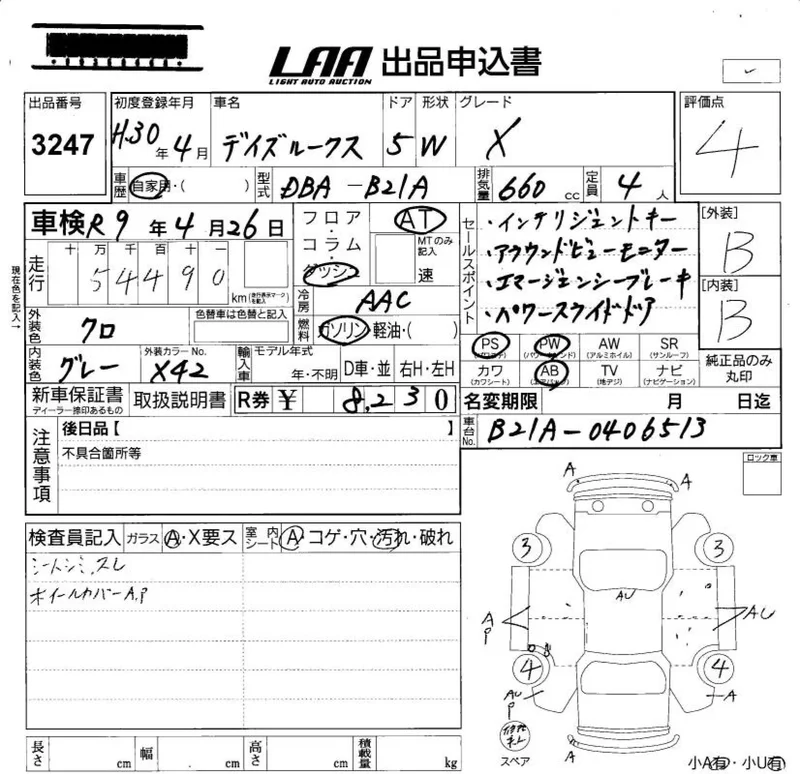 LAA 出品申込書
LIGHT AUTO AUCTION
出品番号 3247
初度登録年月 H.30年4月
車名 デイズルークス
ドア 5
形状 W
グレード X
評価点 4
車歴 自家用・( )
型式 DBA-B21A
排気量 660 cc
定員 4 人
車検 R9年4月26日
フロア・コラム・ダッシュ
AT
MTのみ記入 速
セールスポイント
・インテリジェントキー
・アラウンドビューモニター
・エマージェンシーブレーキ
・パワースライドドア
[外装] B
[内装] B
現在色を記入→
走行 十 万 千 百 十 一
54490 km
(走行表示マークを記入)
冷房 AAC
外装色 クロ
色替車は色替と記入
燃料 ガソリン・軽油・( )
内装色 グレー
外装カラーNo. X42
輸入車 モデル年式 年・不明
D車・並 右H・左H
PS (パワステ) PW (パワーウインド) AW (アルミホイル) SR (サンルーフ)
カワ (カワシート) AB (エアバック) TV (地デジ) ナビ (ナビゲーション)
純正品のみ丸印
新車保証書
ディーラー捺印あるもの
取扱説明書
R券 ¥ 8,230
名変期限 月 日迄
車台No. B21A-0406513
注意事項
後日品【 】
不具合箇所等
ロック車
検査員記入 ガラス A・X要ス
室内シート A・コゲ・穴・汚れ・破れ
シートシミ,スレ
ホイールカバーA,P
A A
3 3
AU
A P
AU
4 4
AU P
A
A
スペア
小A有・小U有
長さ cm 幅 cm 高さ cm 積載量 kg